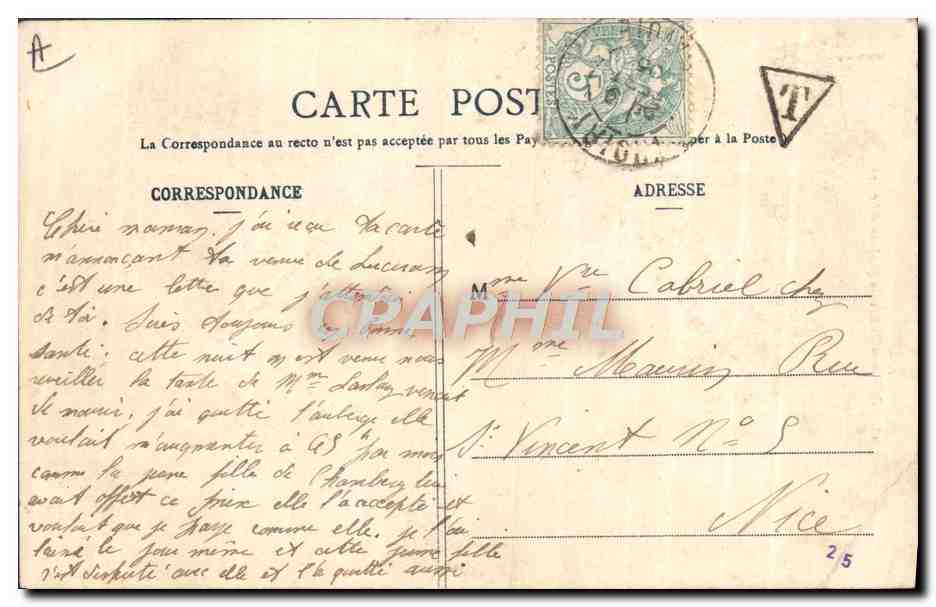 A
CARTE POST
La Correspondance au recto n'est pas acceptée par tous les Pay er à la Poste
T
CORRESPONDANCE
ADRESSE
Chère maman. j'ai reçu ta carte
m'annonçant ta venue de Luceram
c'est une lettre que j'attendai
de toi. Suis toujours en bonne
santé. cette nuit m est venu nous
reveiller la tante de Mme venait
de mourir. j'ai quitté l'auberge elle
voulait m'augmenter à 45 f par mois
comme la jeune fille de Chambery leu
avait offert ce prix elle l'a accepté et
voulait que je paye comme elle. je l'ai
laissé le jour même et cette jeune fille
s'est disputé avec elle et l'a quitté aussi
Mme Vve Cabriel chez
Mme Maurin Rue
St Vincent No 5
Nice
25
CRAPHIL